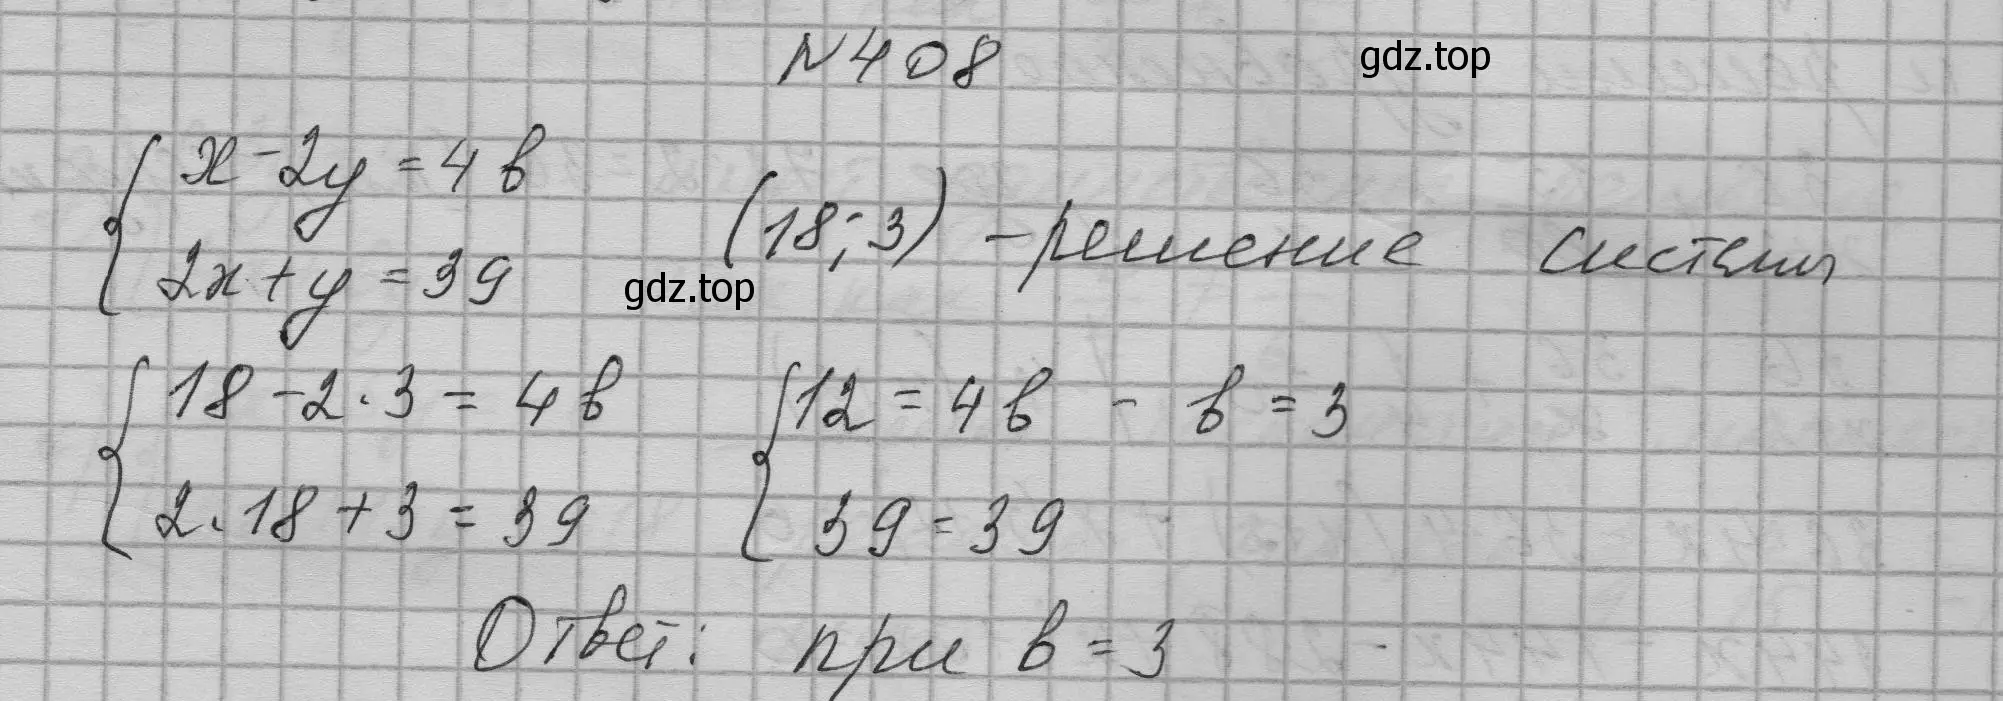 N408
gdz.top
x - 2y = 4b
2x + y = 39
(18; 3) - решение системы
gdz.top
18 - 2 · 3 = 4b
2 · 18 + 3 = 39
12 = 4b - b = 3
39 = 39
Ответ: при b = 3